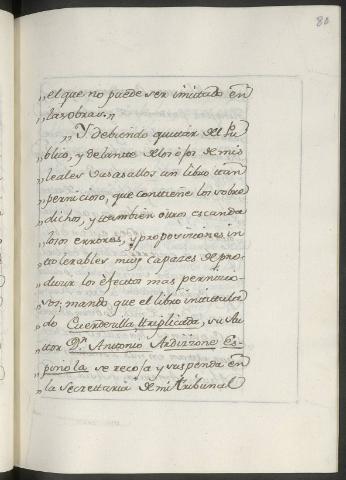 80
„el que no puede ser imitado en
„las obras.„
„Y debiendo quitar del Pu
„blico, y delante de los ojos de mis
„leales vasallos un libro tan
„pernicioso, que contiene los sobre
„dichos, y tambien otros escanda
„losos errores, y proposiciones in
„tolerables muy capaces de pro
„ducir los efectos mas pernicio-
„sos; mando que el libro intitula
„do Cuerdecilla triplicada, su Au
„tor Dn. Antonio Ardizzone Es-
„pinola se recoja y suspenda en
„la Secrettaria de mi Tribunal